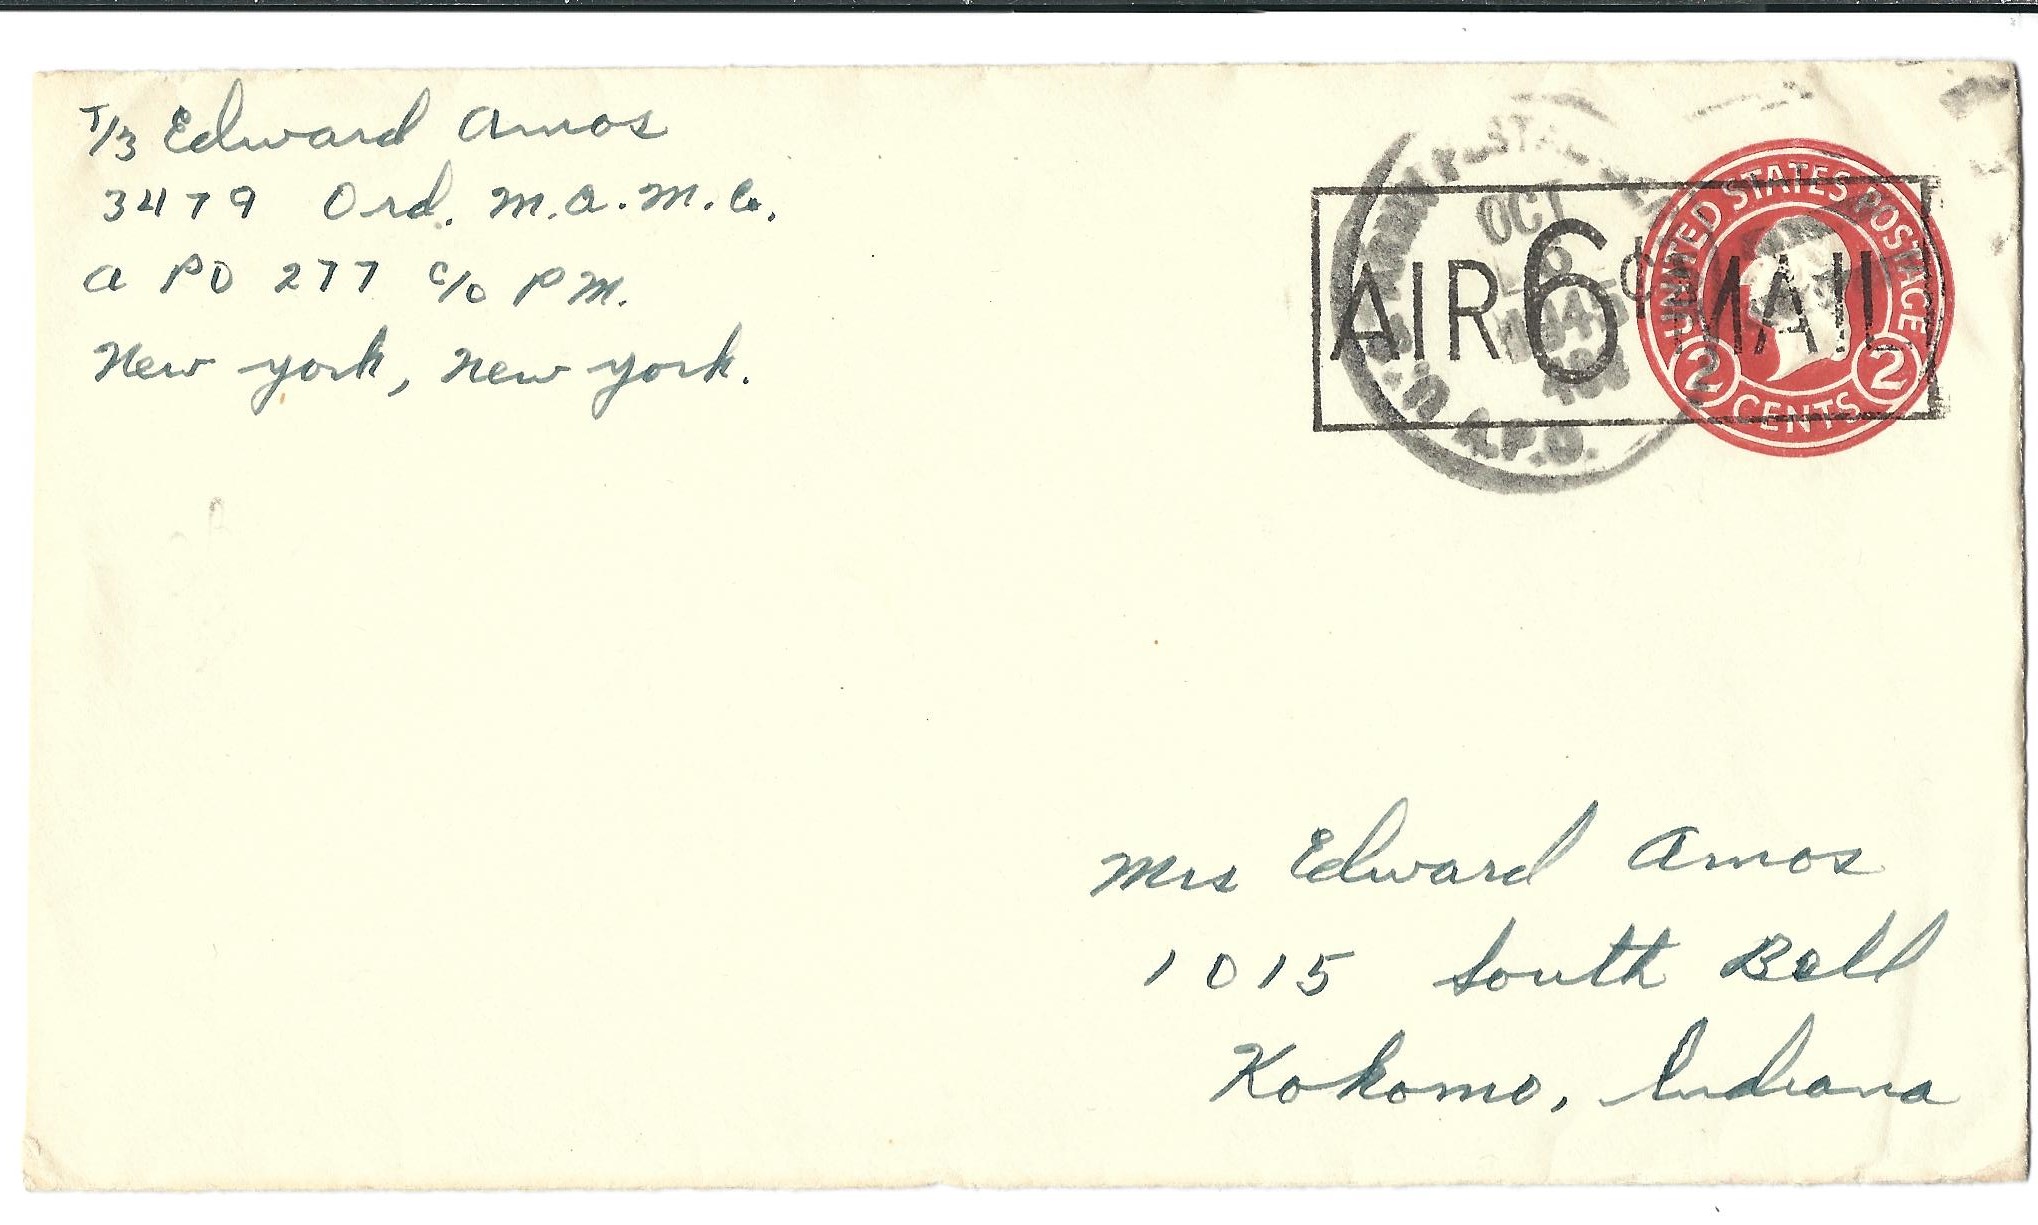 T/3 Edward Amos
3479 Ord. M.A.M. Co.
A PO 277 c/o PM.
New York, New York.
U.S. ARMY POSTAL
OCT
A.P.O.
AIR 6¢ MAIL
UNITED STATES POSTAGE
2 CENTS 2
Mrs Edward Amos
1015 South Bell
Kokomo, Indiana